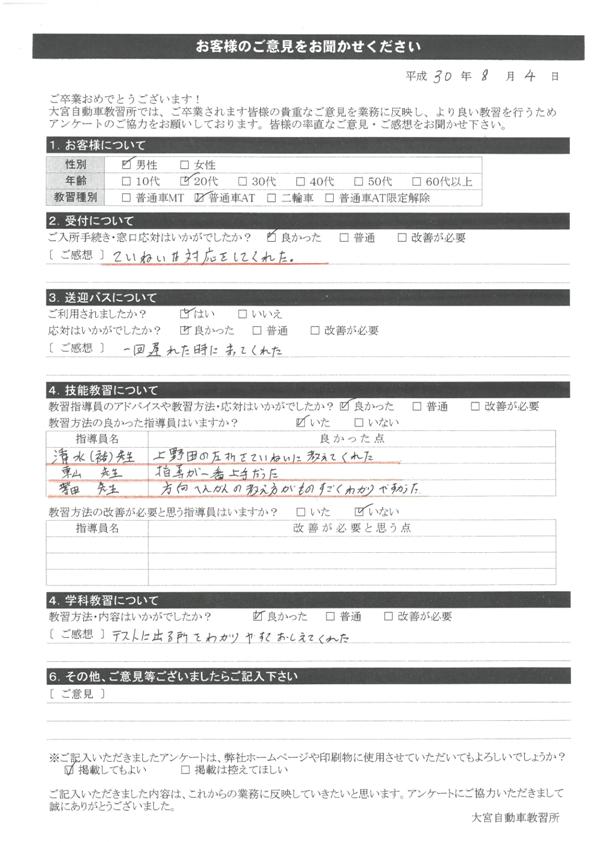 お客様のご意見をお聞かせください
平成 30 年 8 月 4 日
ご卒業おめでとうございます！
大宮自動車教習所では、ご卒業されます皆様の貴重なご意見を業務に反映し、より良い教習を行うため
アンケートのご協力をお願いしております。皆様の率直なご意見・ご感想をお聞かせ下さい。
1. お客様について
性別 ☑ 男性 □ 女性
年齢 □ 10代 ☑ 20代 □ 30代 □ 40代 □ 50代 □ 60代以上
教習種別 □ 普通車MT ☑ 普通車AT □ 二輪車 □ 普通車AT限定解除
2. 受付について
ご入所手続き・窓口応対はいかがでしたか？ ☑ 良かった □ 普通 □ 改善が必要
[ ご感想 ] ていねいな対応をしてくれた。
3. 送迎バスについて
ご利用されましたか？ ☑ はい □ いいえ
応対はいかがでしたか？ ☑ 良かった □ 普通 □ 改善が必要
[ ご感想 ] 一回遅れた時にまってくれた
4. 技能教習について
教習指導員のアドバイスや教習方法・応対はいかがでしたか？ ☑ 良かった □ 普通 □ 改善が必要
教習方法の良かった指導員はいますか？ ☑ いた □ いない
指導員名 良かった点
清水(裕)先生 上野田の左折をていねいに教えてくれた
東山 先生 指導が一番上手だった
先生 方向へんかんの教え方がものすごくわかりやすかった
教習方法の改善が必要と思う指導員はいますか？ □ いた ☑ いない
指導員名 改善が必要と思う点
4. 学科教習について
教習方法・内容はいかがでしたか？ ☑ 良かった □ 普通 □ 改善が必要
[ ご感想 ] テストに出る所をわかりやすくおしえてくれた
6. その他、ご意見等ございましたらご記入下さい
[ ご意見 ]
※ご記入いただきましたアンケートは、弊社ホームページや印刷物に使用させていただいてもよろしいでしょうか？
☑ 掲載してもよい □ 掲載は控えてほしい
ご記入いただきました内容は、これからの業務に反映していきたいと思います。アンケートにご協力いただきまして
誠にありがとうございました。
大宮自動車教習所